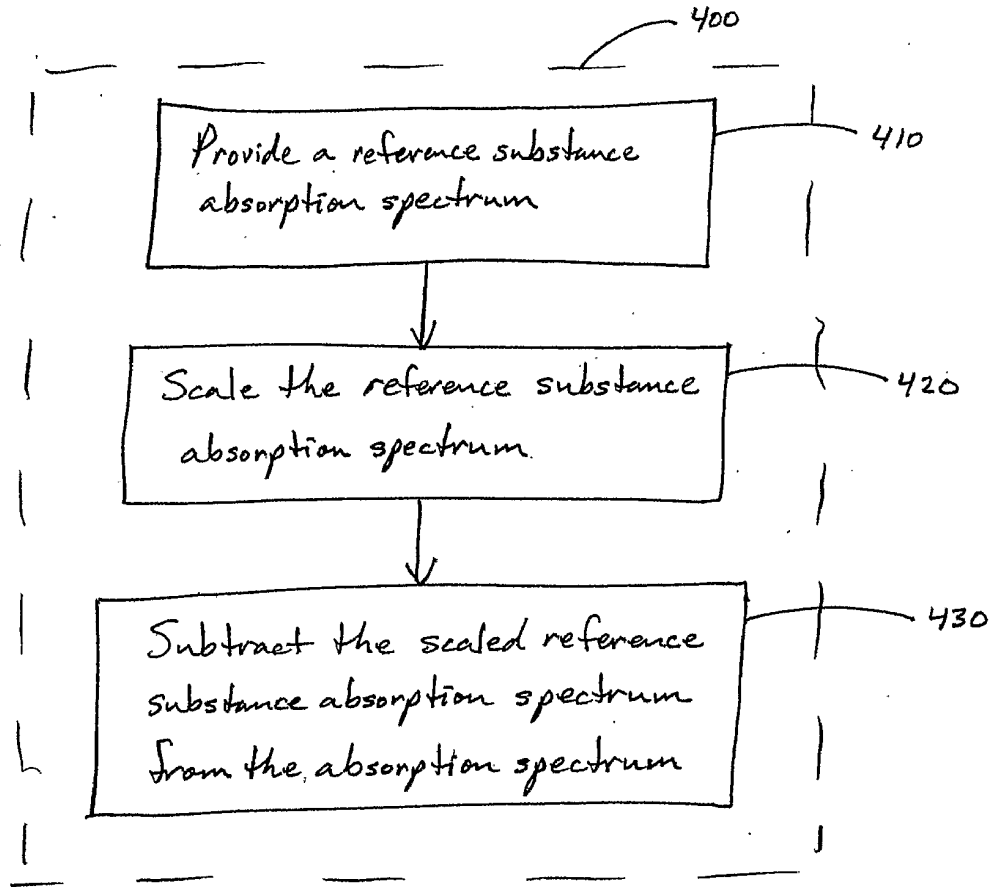 400
Provide a reference substance
absorption spectrum
410
Scale the reference substance
absorption spectrum.
420
Subtract the scaled reference
substance absorption spectrum
from the absorption spectrum
430